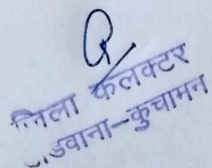 जिला कलक्टर
डवाना-कुचामन